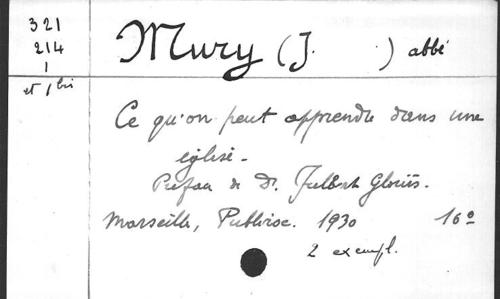 321
214
1
et 1 bis
Mury (J. ) abbé
Ce qu'on peut apprendre dans une
église.
Préface de D. Fulbert Gloriès.
Marseille, Publivox. 1930 16º
2 exempl.